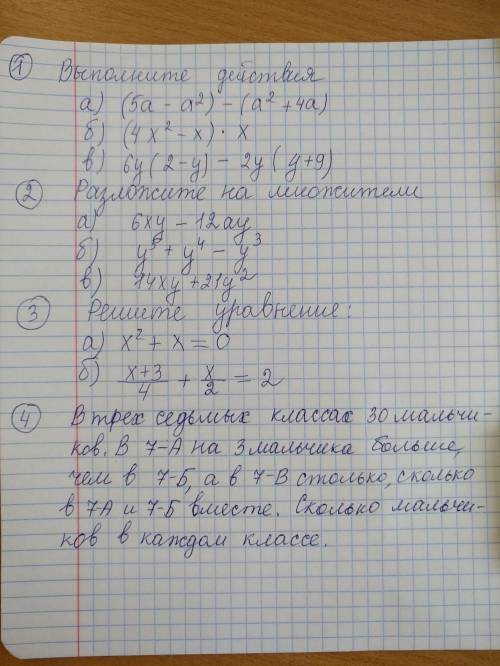 1 Выполните действия
а) (5a - a²) - (a² + 4a)
б) (4x² - x) · x
в) 6y(2 - y) - 2y(y + 9)
2 Разложите на множители
а) 6xy - 12ay
б) y⁵ + y⁴ - y³
в) 14xy + 21y²
3 Решите уравнение:
а) x² + x = 0
б) (x+3)/4 + x/2 = 2
4 В трех седьмых классах 30 мальчи-
ков. В 7-А на 3 мальчика больше,
чем в 7-Б, а в 7-В столько, сколько
в 7А и 7-Б вместе. Сколько мальчи-
ков в каждом классе.